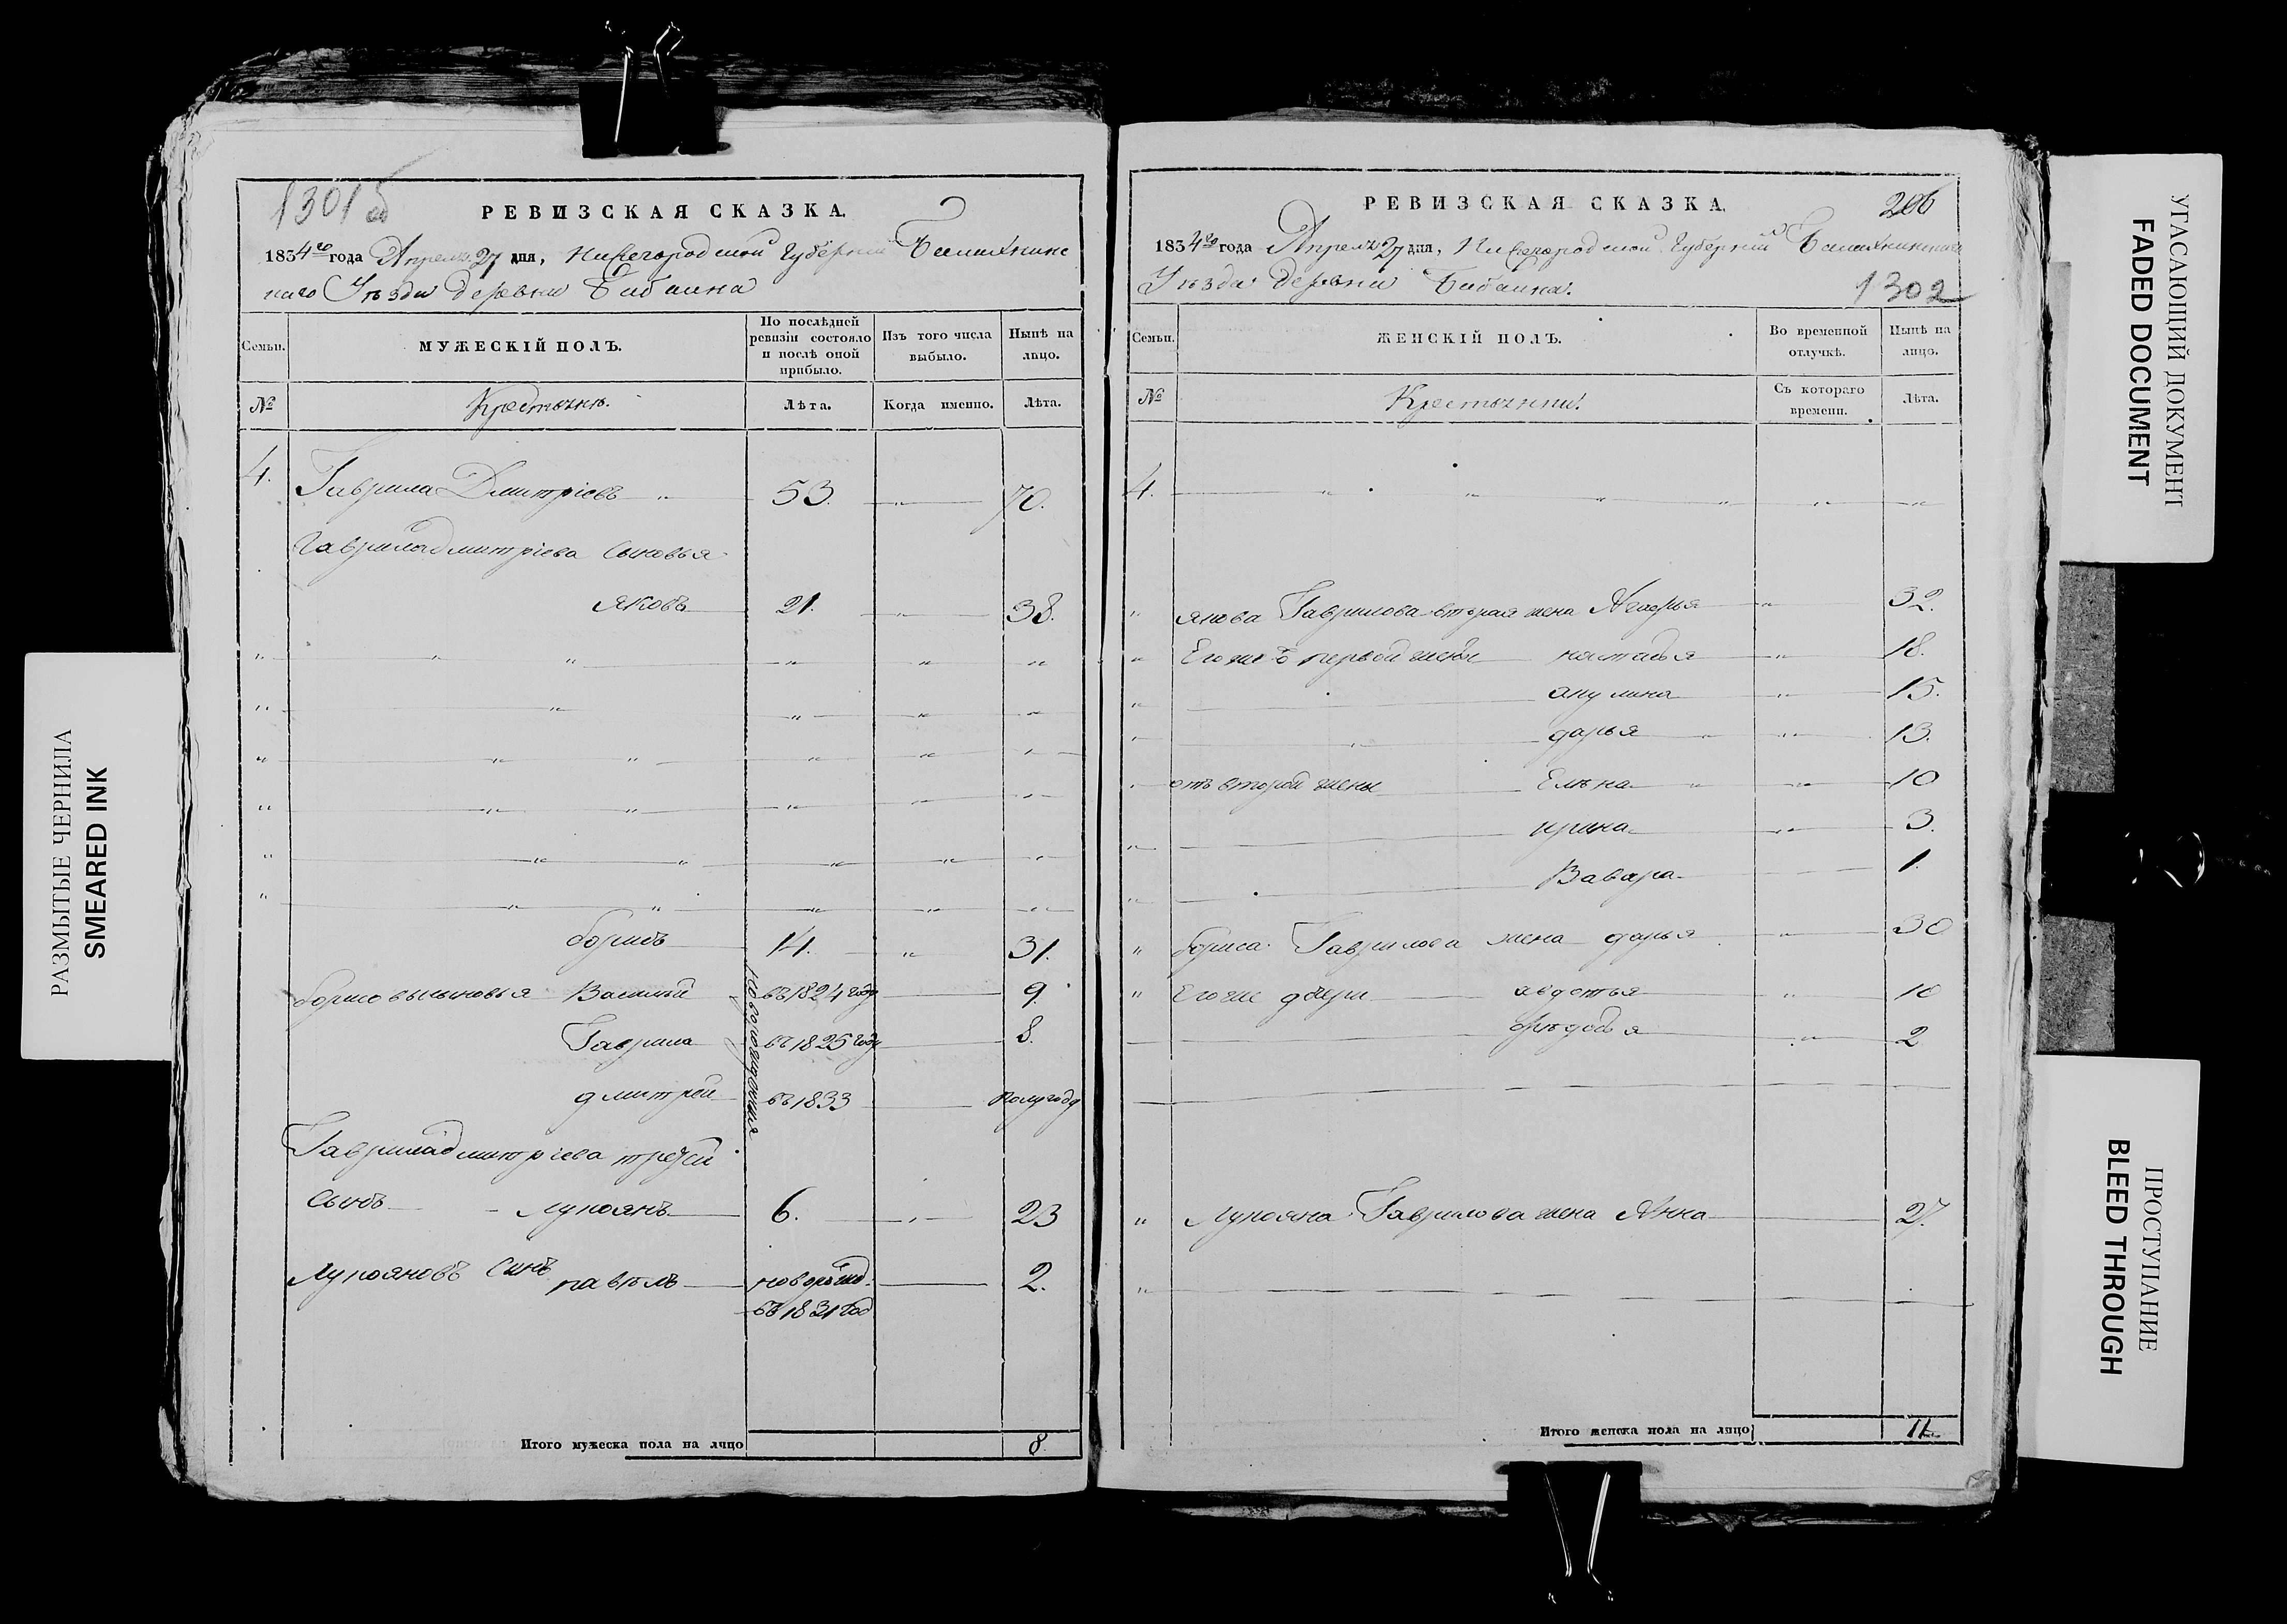 1301 об
РЕВИЗСКАЯ СКАЗКА.
1834го года Апреля 27 дня, Нижегородской Губернии Балахнинс
каго Уѣзда Деревни Бибаина
Семьи.
МУЖЕСКІЙ ПОЛЪ.
По послѣдней ревизіи состояло и послѣ оной прибыло.
Изъ того числа выбыло.
Нынѣ на лицо.
№
Крестьянѣ.
Лѣта.
Когда именно.
Лѣта.
4. Гаврила Дмитріевъ 53. 70.
Гаврила дмитріева сыновья
яковъ 21. 38.
борисъ 14. 31.
борисовы сыновья Василий въ 1824 году 9.
Гаврила въ 1825 году 8.
дмитрей въ 1833 полугоду
новорожденныя
Гаврила дмитріева третей
сынъ лукоянъ 6. 23
лукояновъ сынъ павелъ новорожд. 2.
въ 1831 год
Итого мужеска пола на лицо 8
РЕВИЗСКАЯ СКАЗКА.
206
1834го года Апреля 27 дня, Нижегородской Губерніи Балахнинскаго
Уѣзда Деревни Бибаина.
1302
Семьи.
ЖЕНСКІЙ ПОЛЪ.
Во временной отлучкѣ.
Нынѣ на лицо.
№
Крестьянки.
Съ котораго времени.
Лѣта.
4.
якова Гаврилова вторая жена 32.
Его же первой жены настасья 18.
акулина 15.
дарья 13.
отъ второй жены Елѣна 10
ирина 3.
Вавара 1.
бориса Гаврилова жена дарья 30
Его же дочери авдотья 10
2
Лукояна Гаврилова жена Анна 27.
Итого женска пола на лицо 11
РАЗМЫТЫЕ ЧЕРНИЛА
SMEARED INK
УГАСАЮЩИЙ ДОКУМЕНТ
FADED DOCUMENT
ПРОСТУПАНИЕ
BLEED THROUGH